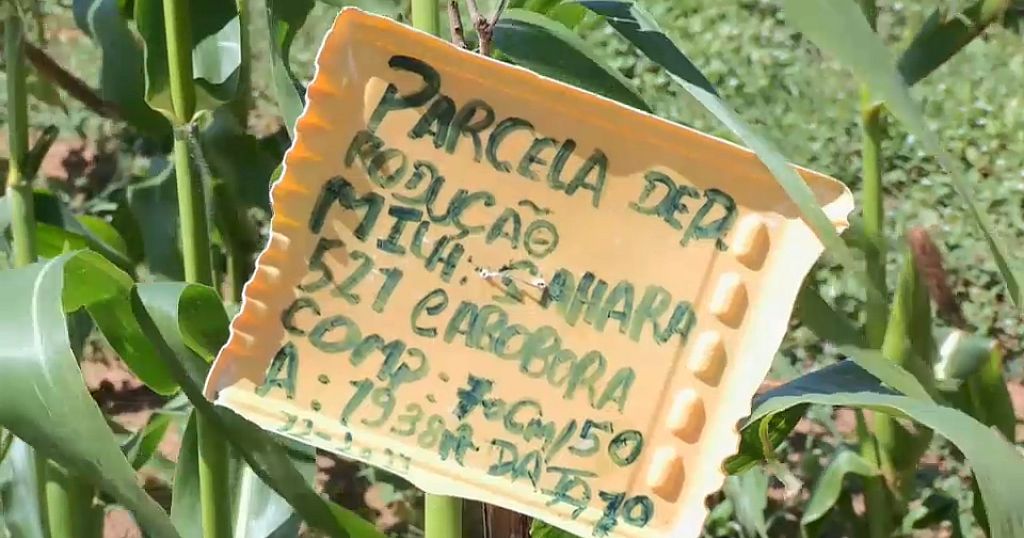 PARCELA DEP.
RODUÇÃO
MILH. SAHARA
521 CABOBORA
COMP: 70CM/50
A: 19.38 A DATA 10